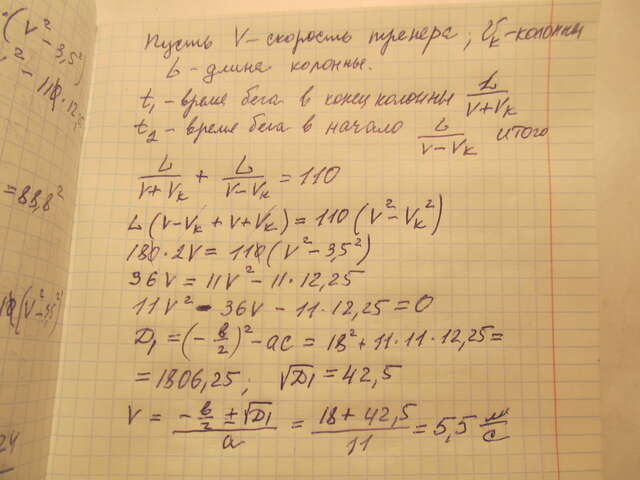 (V² - 3,5²)
² - 110 · 12,5
= 88,8²
(V² - 3,5²)
24
Пусть V - скорость тренера; Vк - колонны
L - длина колонны.
t₁ - время бега в конец колонны L/(V+Vк)
t₂ - время бега в начало L/(V-Vк) итого
L/(V+Vк) + L/(V-Vк) = 110
L(V-Vк+V+Vк) = 110(V²-Vк²)
180·2V = 110(V²-3,5²)
36V = 11V² - 11·12,25
11V² - 36V - 11·12,25 = 0
D₁ = (-в/2)² - ac = 18² + 11·11·12,25 =
= 1806,25; √D₁ = 42,5
V = (-в/2 ± √D₁)/a = (18+42,5)/11 = 5,5 м/с